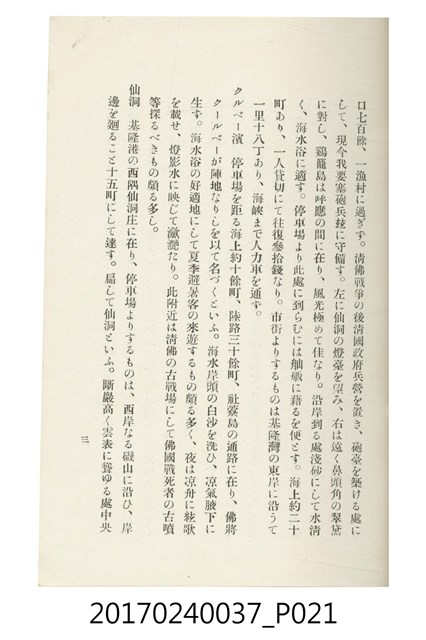 口七百餘、一漁村に過ぎす。淸佛戰爭の後淸國政府兵營を置き、砲臺を築ける處に
して、現今我要塞砲兵玆に守備す。左に仙洞の燈臺を望み、右は遠く鼻頭角の翠黛
に對し、鷄籠島は呼應の間に在り、風光極めて佳なり。沿岸到る處淺砂にして水淸
く、海水浴に適す。停車場より此處に到らむには舢舨に藉るを便とす。海上約二十
町あり、一人貸切にて往復參拾錢なり。市街よりするものは基隆灣の東岸に沿うて
一里十八丁あり、海峽まで人力車を通す。
クルベー濱 停車場を距る海上約十餘町、陸路三十餘町、社藔島の通路に在り、佛將
クールベーが陣地なりしを以て名づくといふ。海水岸頭の白沙を洗ひ、凉氣腋下に
生す。海水浴の好適地にして夏季避暑客の來遊するもの頗る多く、夜は凉舟に絃歌
を載せ、燈影水に映じて瀲灔たり。此附近は淸佛の古戰場にして佛國戰死者の古墳
等探るべきもの頗る多し。
仙洞 基隆港の西隅仙洞庄に在り、停車場よりするものは、西岸なる磯山に沿ひ、岸
邊を廻ること十五町にして達す。扁して仙洞といふ。斷巖高く雲表に聳ゆる處中央
三
20170240037_P021